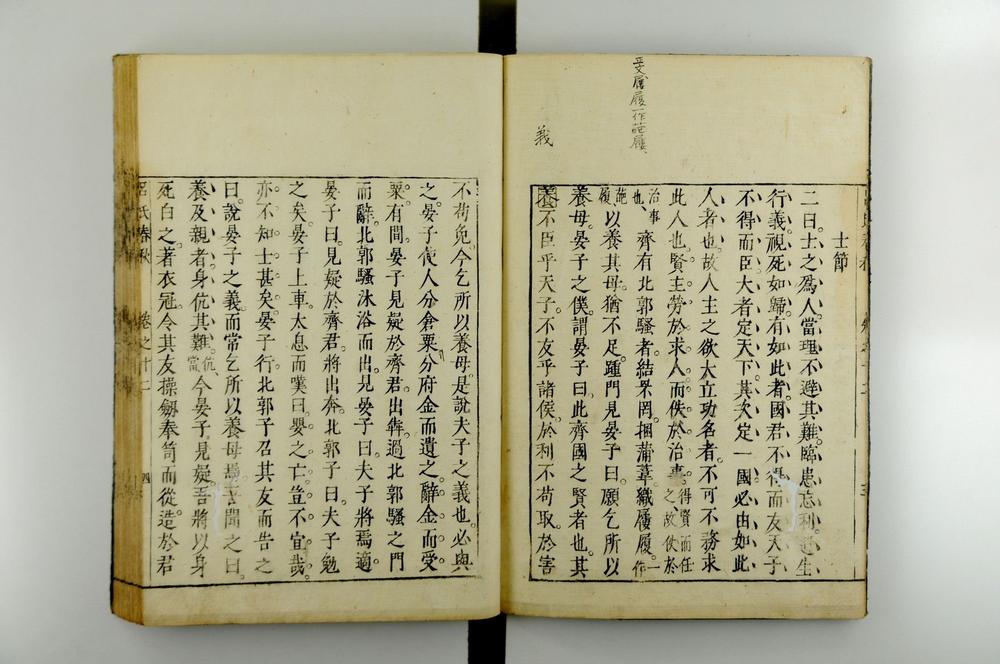 義
士節
二曰。士之爲人。當理不避其難。臨患忘利。遺生
行義。視死如歸。有如此者。國君不得而友。天子
不得而臣。大者定天下。其次定一國。必由如此
人者也。故人主之欲大立功名者。不可不務求
此人也。賢主勞於求人。而佚於治事。得賢而任之故佚於
治事也。齊有北郭騷者。結罘罔。捆蒲葦。織屨履。一作
葩履以養其母。猶不足。踵門見晏子曰。願乞所以
養母。晏子之僕。謂晏子曰。此齊國之賢者也。其
養不臣乎天子。不友乎諸侯。於利不苟取。於害
不苟免。今乞所以養母。是說夫子之義也。必與
之。晏子使人分倉粟分府金而遺之。辭金而受
粟。有間。晏子見疑於齊君。出犇。過北郭騷之門
而辭。北郭騷沐浴而出。見晏子曰。夫子將焉適
晏子曰。見疑於齊君。將出奔。北郭子曰。夫子勉
之矣。晏子上車。太息而嘆曰。嬰之亡。豈不宜哉。
亦不知士甚矣。晏子行。北郭子召其友而告之
曰。說晏子之義。而常乞所以養母焉。吾聞之曰。
養及親者。身伉其難。伉當今晏子見疑。吾將以身
死白之。著衣冠。令其友操劒奉笥而從。造於君
呂氏春秋 卷之十二 四